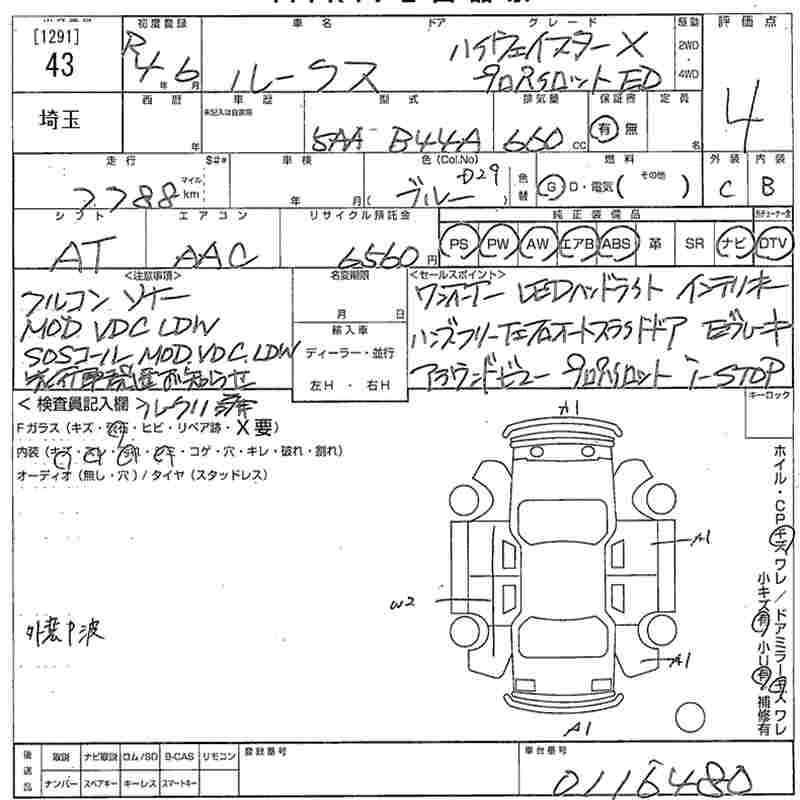 [1291]
43
埼玉
初度登録
R4年6月
車名
ルークス
ドア
グレード
ハイウェイスターX
プロパイロットED
駆動
2WD
4WD
評価点
4
西暦
年
車歴
未記入は自家用
型式
5AA-B44A
排気量
660cc
保証書
有 無
定員
名
走行
7788
マイル
km
S#*
車検
年 月(
色(Col.No)
ブルー D29
)
色替
燃料
G・D・電気( その他 )
外装
C
内装
B
シフト
AT
エアコン
AAC
リサイクル預託金
6560円
純正装備品
PS PW AW エアB ABS 革 SR ナビ DTV
<注意事項>
フルコン ソナー
MOD VDC LDW
SOSコール MOD.VDC.LDW
名変期限
月 日
輸入車
ディーラー・並行
左H ・ 右H
<セールスポイント>
ワンオーナー LEDヘッドライト インテリキー
ハンズフリー左右オートスライドドア Eブレーキ
アラウンドビュー プロパイロット i-STOP
キーロック
<検査員記入欄>
Fガラス(キズ・飛石・ヒビ・リペア跡・X要)
内装(キズ・スレ・汚れ・シミ・コゲ・穴・キレ・破れ・割れ)
オーディオ(無し・穴)/タイヤ(スタッドレス)
A1
A1
W2
A1
A1
外装中波
ホイル・CPキズ ワレ/ドアミラーキズ ワレ
小キズ有 小U有 補修有
後送品
取説 ナビ取説 ロム/SD B-CAS リモコン
ナンバー スペアキー キーレス スマートキー
登録番号
車台番号
0116480